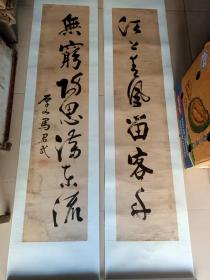 江上春風留客舟
無窮歸思滿東流
馬君武